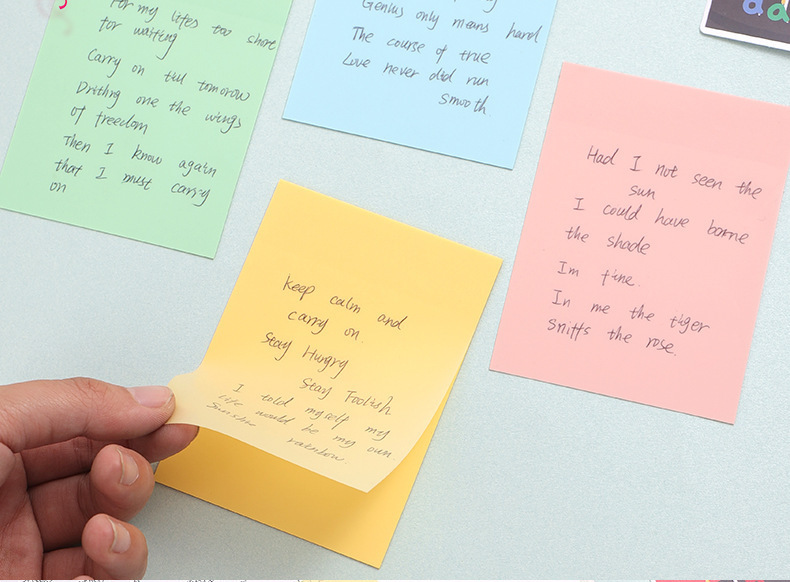 For my lifes too short
for waiting
Carry on till tomorrow
Drifting one the wings
of freedom
Then I know again
that I must carry
on
Genius only means hard
The course of true
Love never did run
smooth.
Had I not seen the
sun
I could have borne
the shade
Im fine.
In me the tiger
sniffs the rose.
Keep calm and
carry on.
Stay Hungry
Stay Foolish
I told myself my
life would be my own
sunshine rainbow.